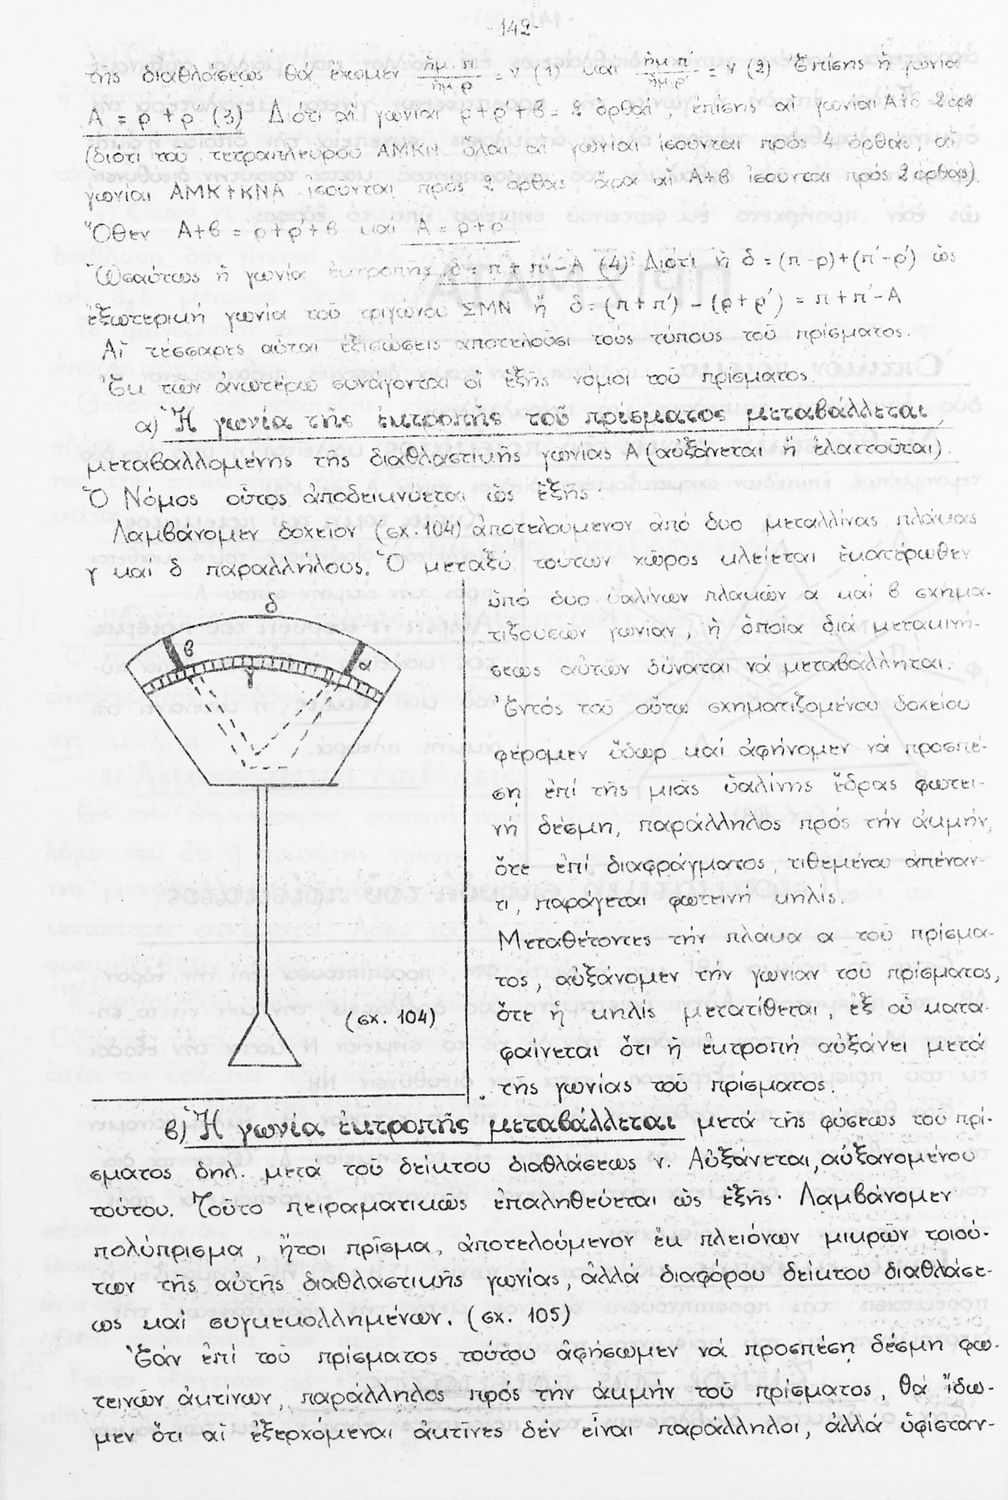 -142-
τῆς διαθλάσεως θά ἔχωμεν ἡμ.π/ἡμ.ρ = ν (1) καί ἡμ.π'/ἡμ.ρ' = ν (2) Ἐπίσης ἡ γωνία
Α = ρ + ρ' (3) Διότι αἱ γωνίαι ρ+ρ'+θ = 2 ὀρθαί, ἐπίσης αἱ γωνίαι Α+θ=2ορθ
(διότι τοῦ τετραπλεύρου ΑΜΚΝ ὅλαι αἱ γωνίαι ἰσοῦνται πρός 4 ὀρθάς, αἱ
γωνίαι ΑΜΚ+ΚΝΑ ἰσοῦνται πρός 2 ὀρθάς, ἄρα αἱ Α+θ ἰσοῦνται πρός 2 ὀρθάς).
Ὅθεν Α+θ = ρ+ρ'+θ καί Α = ρ+ρ'
Ὡσαύτως ἡ γωνία ἐκτροπῆς, δ = π + π' - Α (4) Διότι ἡ δ = (π-ρ)+(π'-ρ') ὡς
ἐξωτερική γωνία τοῦ τριγώνου ΣΜΝ ἤ δ = (π+π') - (ρ+ρ') = π+π'-Α
Αἱ τέσσαρες αὗται ἐξισώσεις ἀποτελοῦσι τούς τύπους τοῦ πρίσματος.
Ἐκ τῶν ἀνωτέρω συνάγονται οἱ ἑξῆς νόμοι τοῦ πρίσματος
α) Ἡ γωνία τῆς ἐκτροπῆς τοῦ πρίσματος μεταβάλλεται,
μεταβαλλομένης τῆς διαθλαστικῆς γωνίας Α (αὐξάνεται ἤ ἐλαττοῦται).
Ὁ Νόμος οὗτος ἀποδεικνύεται ὡς ἑξῆς:
Λαμβάνομεν δοχεῖον (σχ. 104) ἀποτελούμενον ἀπό δυο μεταλλίνας πλάκας
γ καί δ παραλλήλους. Ὁ μεταξύ τούτων χῶρος κλείεται ἑκατέρωθεν
ὑπό δυο ὑαλίνων πλακῶν α καί β σχημα-
τιζουσῶν γωνίαν, ἡ ὁποία διά μετακινή-
σεως αὐτῶν δύναται νά μεταβάλληται.
Ἐντός τοῦ οὕτω σχηματιζομένου δοχείου
φέρομεν ὕδωρ καί ἀφήνομεν νά προσπέ-
σῃ ἐπί τῆς μιᾶς ὑαλίνης ἕδρας φωτει-
νή δέσμη, παράλληλος πρός τήν ἀκμήν,
ὅτε ἐπί διαφράγματος, τιθεμένου ἀπέναν-
τι, παράγεται φωτεινή κηλίς.
Μεταθέτοντες τήν πλάκα α τοῦ πρίσμα-
τος, αὐξάνομεν τήν γωνίαν τοῦ πρίσματος,
ὅτε ἡ κηλίς μετατίθεται, ἐξ οὗ κατα-
φαίνεται ὅτι ἡ ἐκτροπή αὐξάνει μετά
τῆς γωνίας τοῦ πρίσματος.
δ
β
α
γ
(σχ. 104)
β) Ἡ γωνία ἐκτροπῆς μεταβάλλεται μετά τῆς φύσεως τοῦ πρί-
σματος δηλ. μετά τοῦ δείκτου διαθλάσεως ν. Αὐξάνεται, αὐξανομένου
τούτου. Τοῦτο πειραματικῶς ἐπαληθεύεται ὡς ἑξῆς. Λαμβάνομεν
πολύπρισμα, ἤτοι πρῖσμα, ἀποτελούμενον ἐκ πλειόνων μικρῶν τοιού-
των τῆς αὐτῆς διαθλαστικῆς γωνίας, ἀλλά διαφόρου δείκτου διαθλάσε-
ως καί συγκεκολλημένων. (σχ. 105)
Ἐάν ἐπί τοῦ πρίσματος τούτου ἀφήσωμεν νά προσπέσῃ δέσμη φω-
τεινῶν ἀκτίνων, παράλληλος πρός τήν ἀκμήν τοῦ πρίσματος, θά ἴδω-
μεν ὅτι αἱ ἐξερχόμεναι ἀκτῖνες δέν εἶναι παράλληλοι, ἀλλά ὑφίσταν-